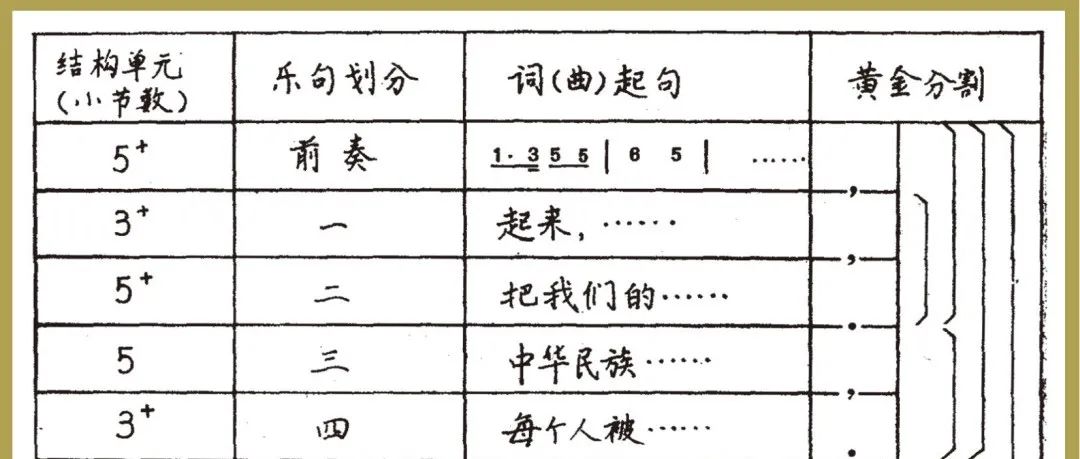 结构单元 乐句划分 词(曲)起句 黄金分割
(小节数)
5⁺ 前奏 1·3 5 5 | 6 5 | ……
3⁺ 一 起来，……
5⁺ 二 把我们的……
5 三 中华民族……
3⁺ 四 每个人被……